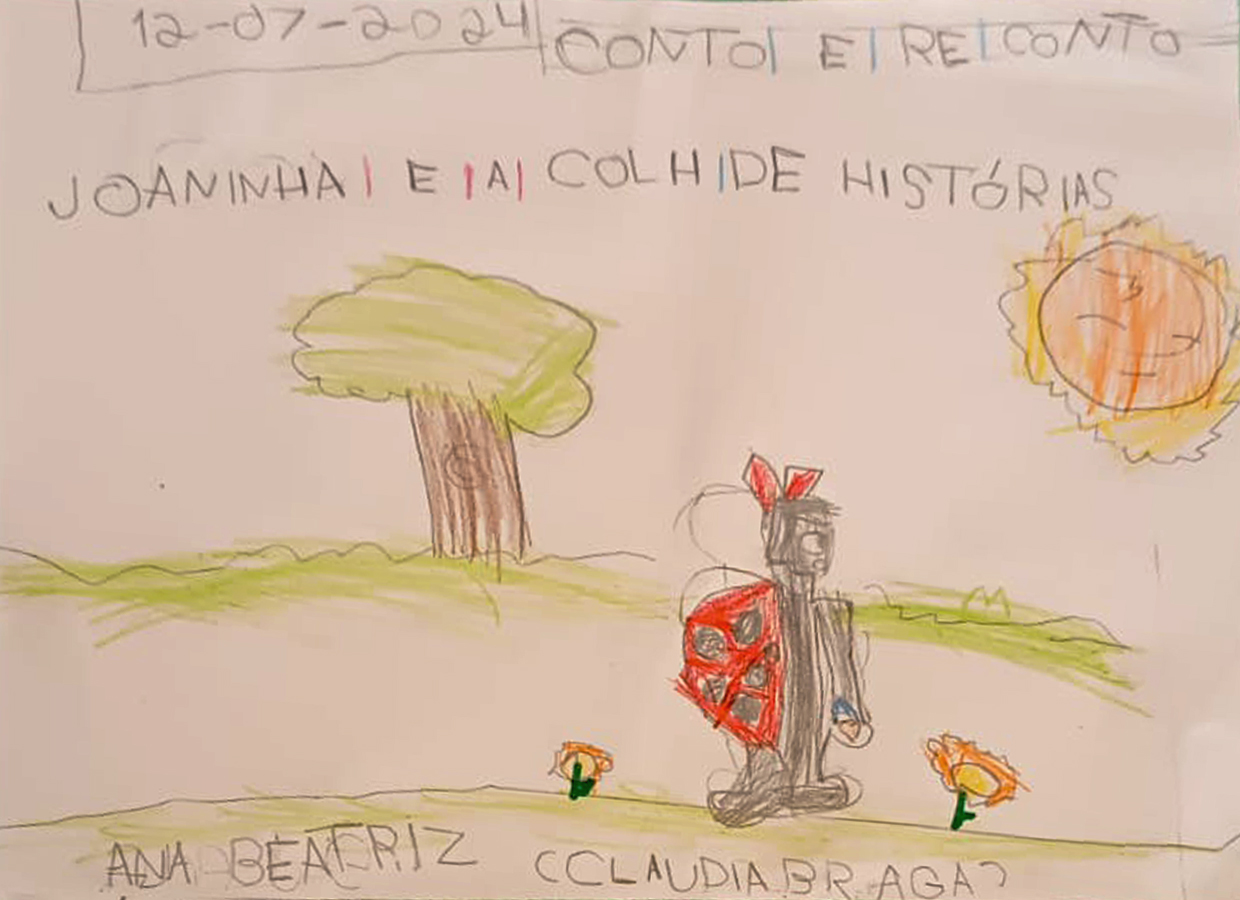 12-07-2024 CONTO| E| RE|CONTO
JOANINHA| E |A| COLH|DE HISTÓRIAS
ANA BEATRIZ (CLAUDIA BRAGA)